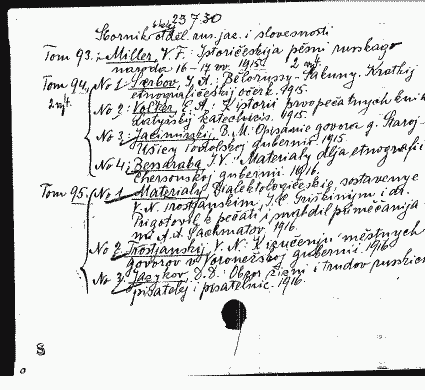 23730
Sbornik otděl. rus. jaz. i slovesnosti
Tom 93. Miller, V. F.: Istoričeskija pěsni russkago
naroda 16-17 vv. 1915.
Tom 94, No 1. Serbov, I. A.: Bělorussy-Sakuny. Kratkij
2 výt. etnografičeskij očerk. 1915.
No 2. Vol'ter, E. A.: K istorii prvopečatnych knig
Latyšskij katechizis. 1915.
No 3. Jacimirskij, B. M. Opisanie govora g. Staroj-
Ušicy Podol'skoj gubernii. 1915.
No 4. Bessaraba, I. V.: Materialy dlja etnografii
Chersonskoj gubernii. 1916.
Tom 95. No 1. Materialy dialektologičeskie, sostavlenye
V. N. Trostjanskim, I. S. Griškinym i dr.
Prigotovil k pečati i snabdil primečanija
mi A. A. Šachmatov. 1916.
No 2. Trostjanskij, V. N.: K izučeniju městnych
govorov v Voronežskoj gubernii. 1916.
No 3. Jazykov, D. D.: Obzor žizni i trudov russkich
pisatelej i pisatelnic. 1916.
8